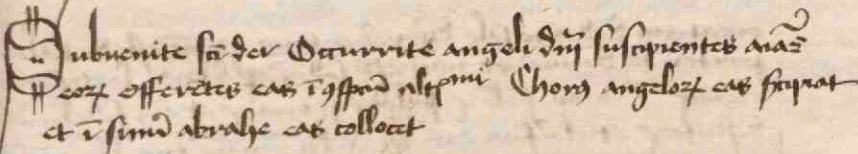 Subuenite sc̄i dei Occurrite angeli dn̄i suscipientes aīaꝝ
eoꝝ offerētes eas ī ꝯspc̄u altmi Choꝝ angeloꝝ eas scipiat
et ī sinū abrahe eas collocet